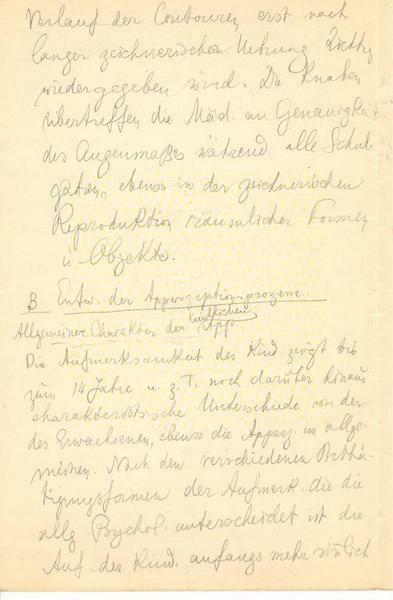 Verlauf der Contouren erst nach
langer zeichnerischer Uebung richtig
wiedergegeben wird. Die Knaben
übertreffen die Mäd. an Genauigkeit
des Augenmaßes während alle Schul
jahre, ebenso in der zeichnerischen
Reproduktion räumlicher Formen
u Objekte.
B. Entw. der Apperzeptionsprozesse
Allgemeiner Charakter der kindlichen App.
Die Aufmerksamkeit des Kind. zeigt bis
zum 14 Jahre u z. T. noch darüber hinaus
charakteristische Unterschiede von der
des Erwachsenen, ebenso die Apperz. im allge-
meinen. Nach den verschiedenen Bethä-
tigungsformen der Aufmerk. die die
allg Psychol. unterscheidet ist die
Auf. des Kind. anfangs mehr sinnlich